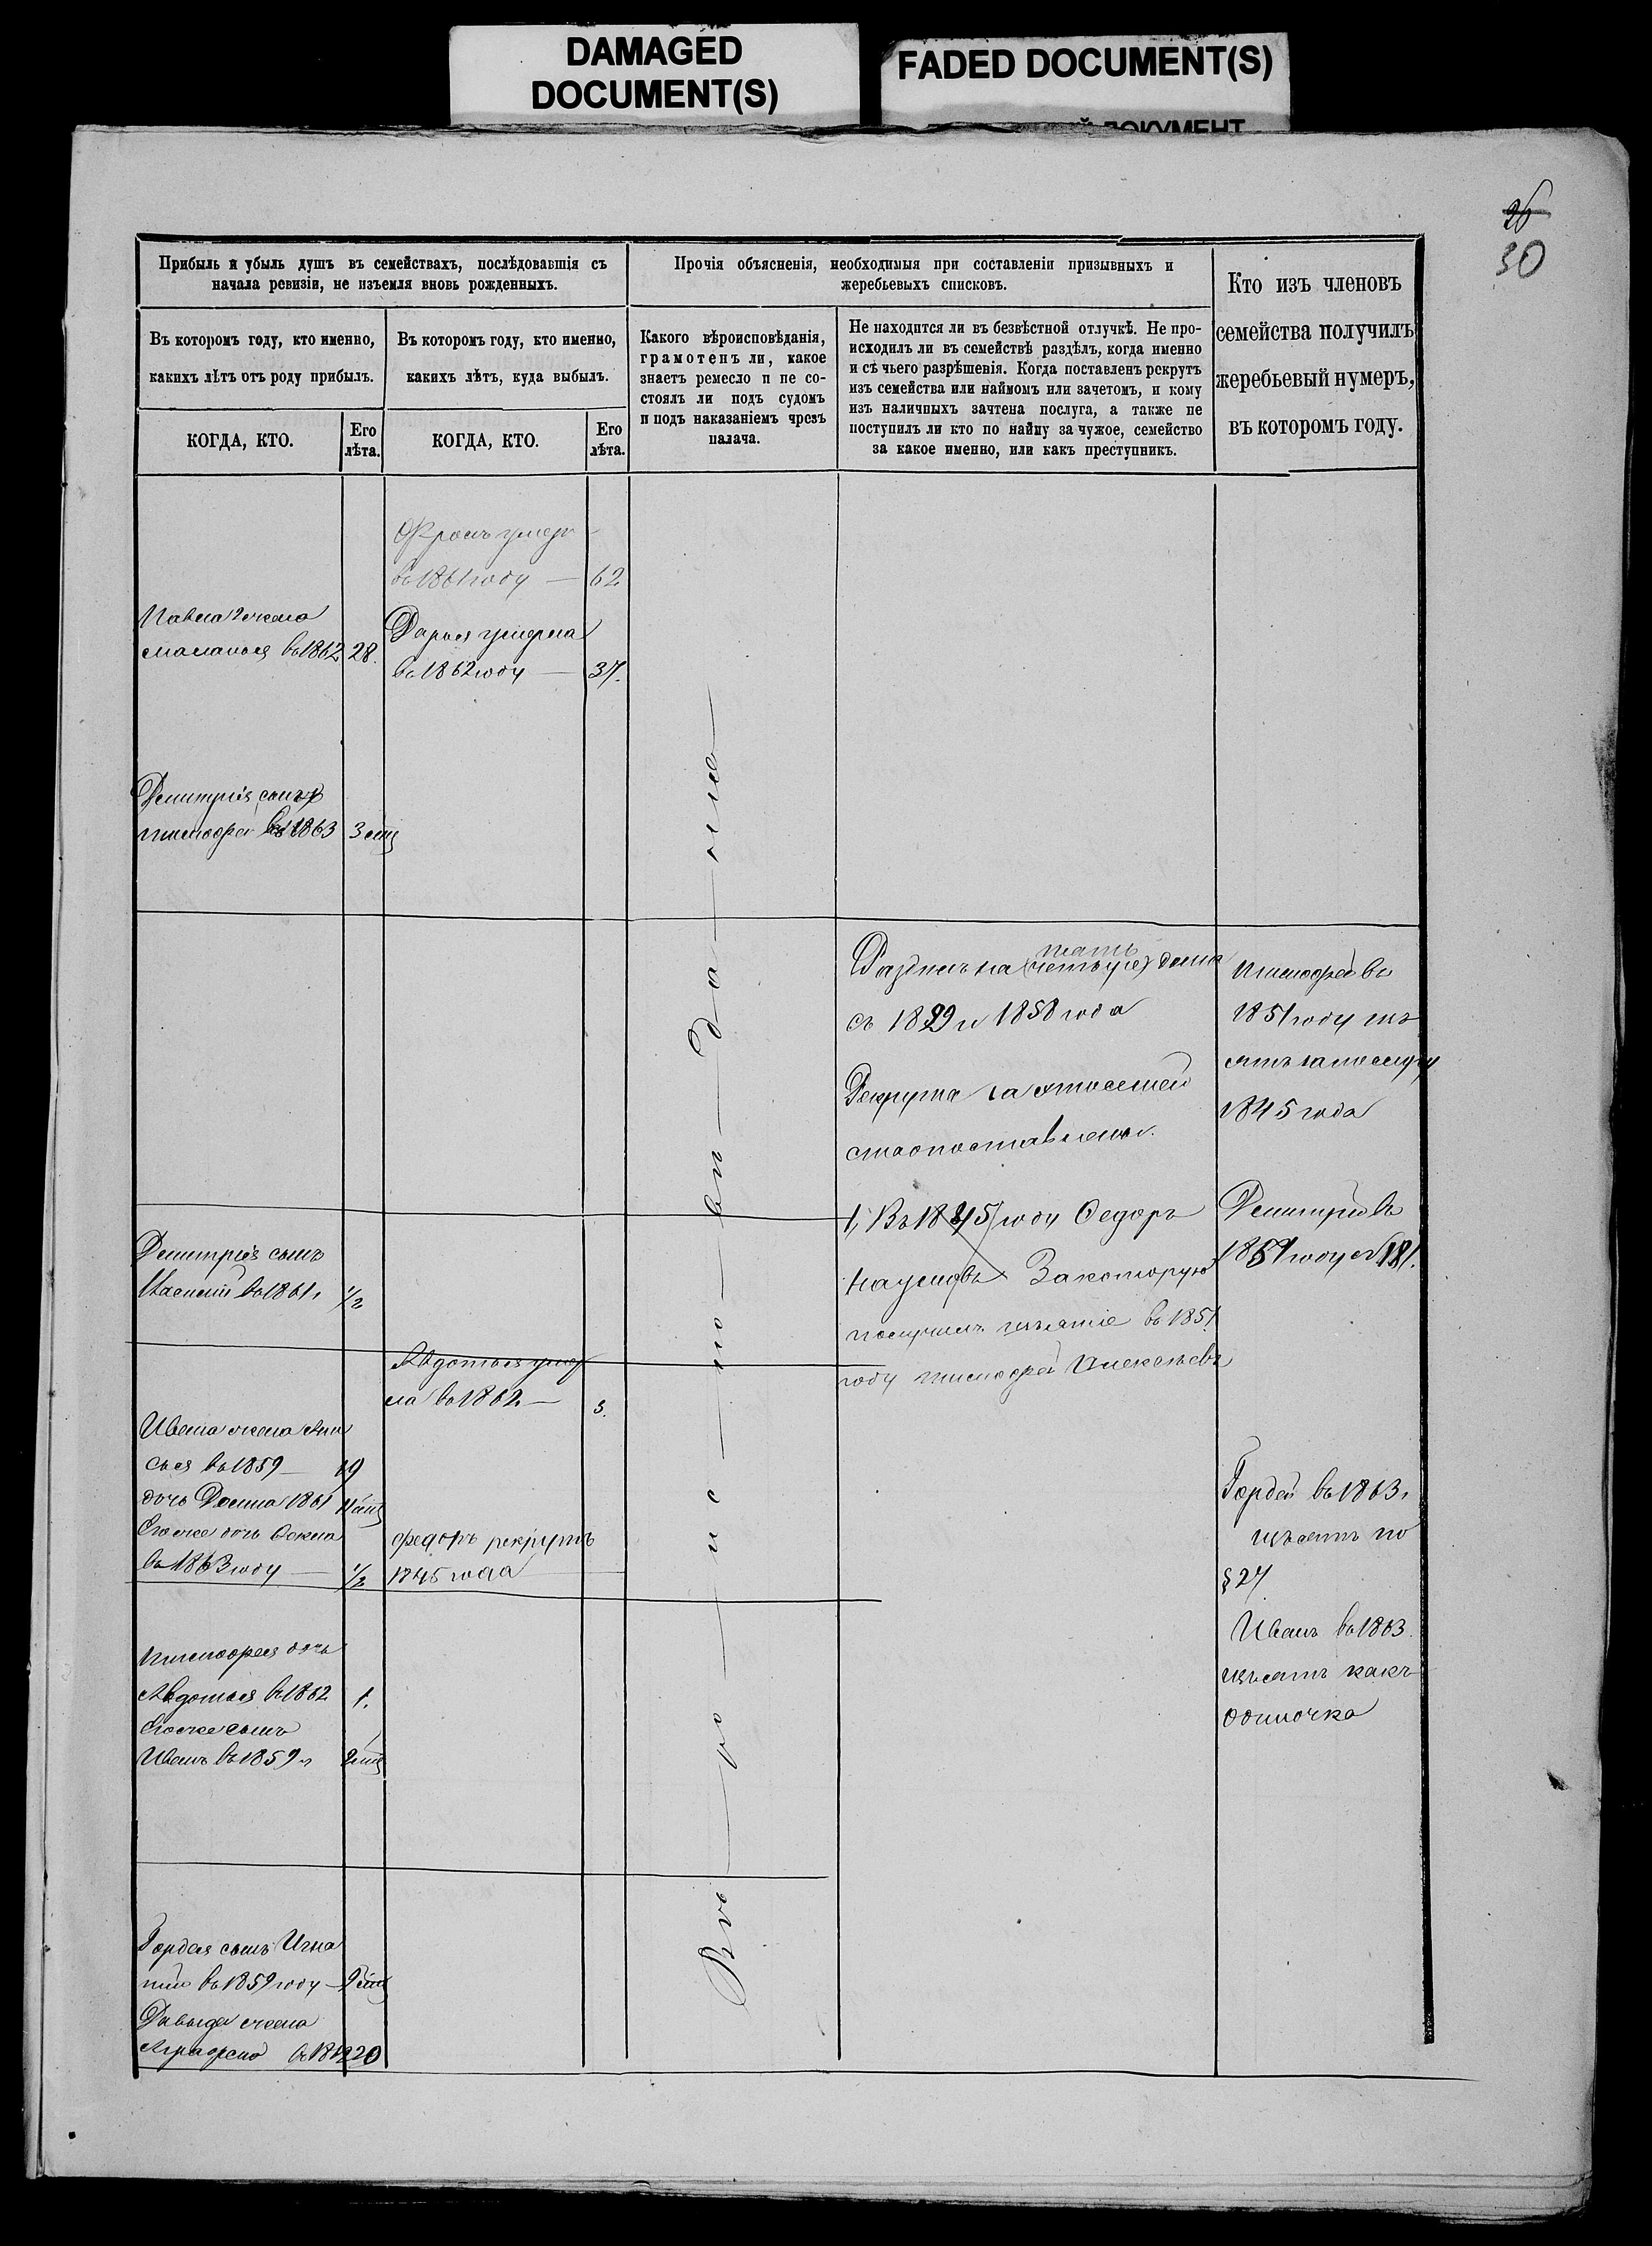 DAMAGED
DOCUMENT(S)
FADED DOCUMENT(S)
ДОКУМЕНТ
30
Прибыль и убыль душъ въ семействахъ, послѣдовавшія съ
начала ревизіи, не изъемля вновь рожденныхъ.
Въ которомъ году, кто именно,
какихъ лѣтъ отъ роду прибылъ.
КОГДА, КТО.
Его
лѣта.
Въ которомъ году, кто именно,
какихъ лѣтъ, куда выбылъ.
КОГДА, КТО.
Его
лѣта.
Прочія объясненія, необходимыя при составленіи призывныхъ и
жеребьевыхъ списковъ.
Какого вѣроисповѣданія,
грамотенъ ли, какое
знаетъ ремесло и не со-
стоялъ ли подъ судомъ
и подъ наказаніемъ чрезъ
палача.
Не находится ли въ безвѣстной отлучкѣ. Не про-
исходилъ ли въ семействѣ раздѣлъ, когда именно
и съ чьего разрѣшенія. Когда поставленъ рекрутъ
изъ семейства или наймомъ или зачетомъ, и кому
изъ наличныхъ зачтена послуга, а также не
поступилъ ли кто по найму за чужое, семейство
за какое именно, или какъ преступникъ.
Кто изъ членовъ
семейства получилъ
жеребьевый нумеръ,
въ которомъ году.
умеръ
въ 1861 году — 62
Павла жена
Маланья въ 1862 28.
Дарья умерла
въ 1862 году — 37.
Дмитрія сынъ
Тимофей въ 1863 3 мѣц
Раздѣлъ на пять дома
съ 1829 и 1858 года
Рекрута
1, Въ 1845 году Федоръ
Наумовъ За которую
получилъ изъятіе въ 1851
году Тимофей Алексѣевъ
Тимофей въ
1851 году изъ
ятъ за послугу
1845 года
Дмитрій въ
1851 году № 181.
Дмитрія сынъ
въ 1861 г 1/2
Авдотья умер
ла въ 1862 — 3.
Ивана жена Ани
сья въ 1859 — 19
дочь Домна 1861 11 мѣц
Егоже дочь Фекла
въ 1863 году — 1/2
Федоръ рекрутъ
1845 года
Тимофея дочь
Авдотья въ 1862 1.
Егоже сынъ
Иванъ въ 1859 г 2 мѣц
Гордей въ 1863 г
изъятъ по
§ 27
Иванъ въ 1863
изъятъ какъ
одиночка
Гордея сынъ Игна
тій въ 1859 году — 9 мѣц
Давыда жена
Аграфена 20